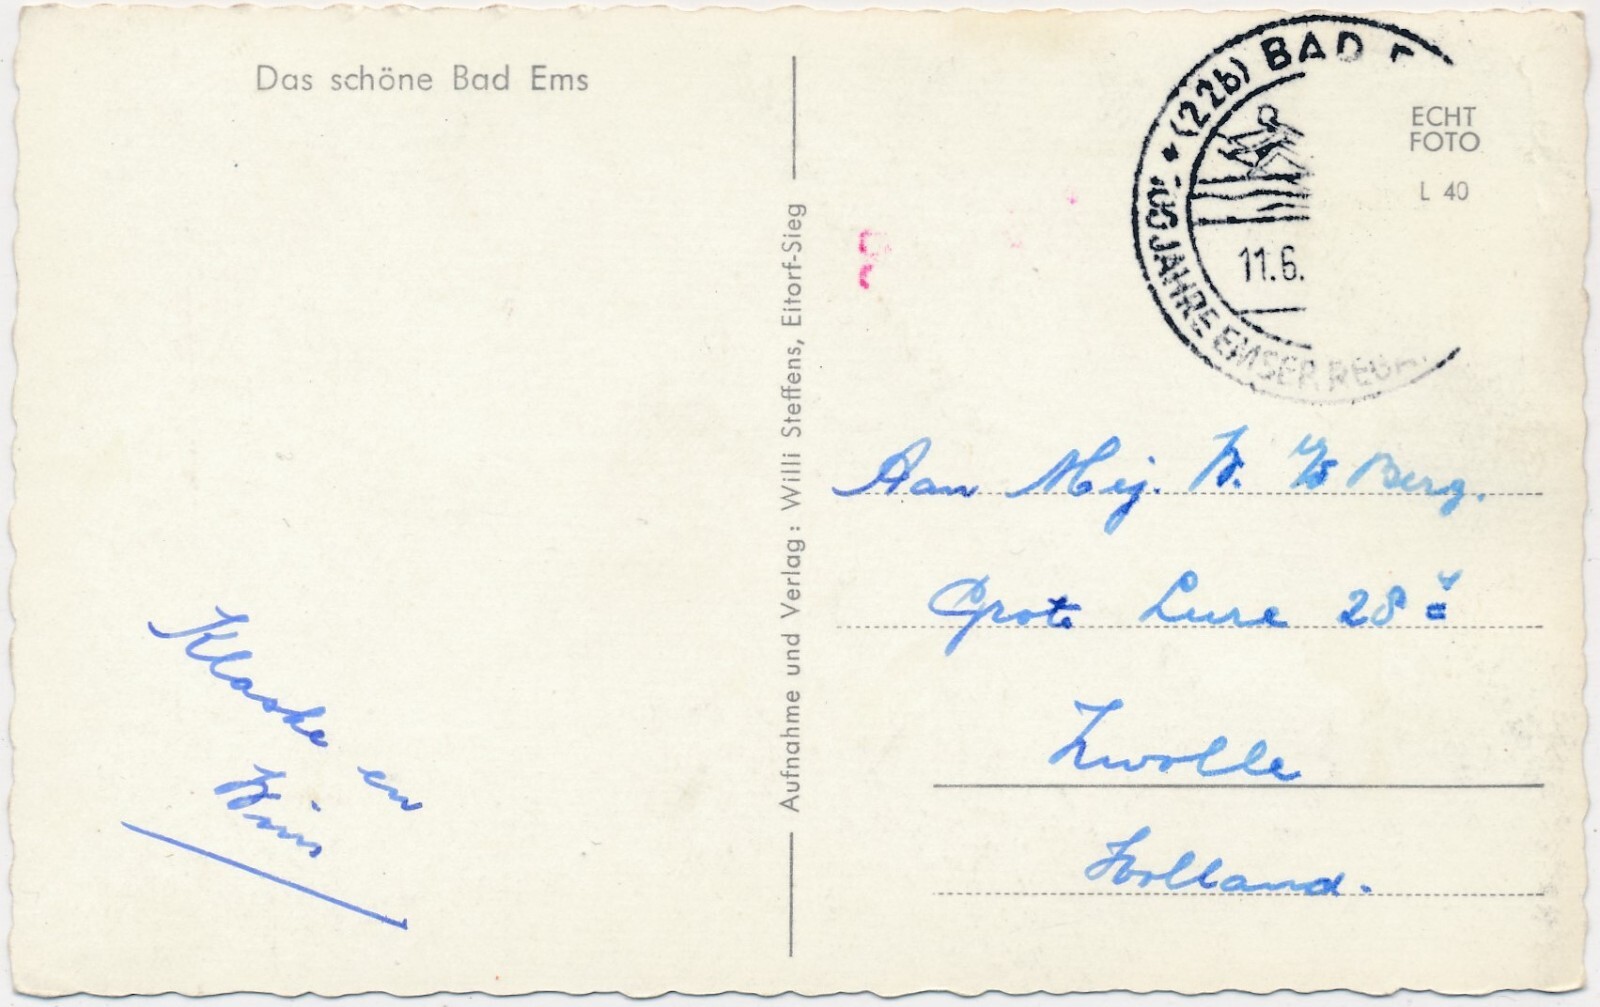 Das schöne Bad Ems
(22b) BAD
JAHRE EMSER
11.6.
ECHT
FOTO
L 40
Aufnahme und Verlag: Willi Steffens, Eitorf-Sieg
Aan Mej. W. v/d Berg.
Grote Lure 28
Zwolle
Holland.
Klaske en
Wim